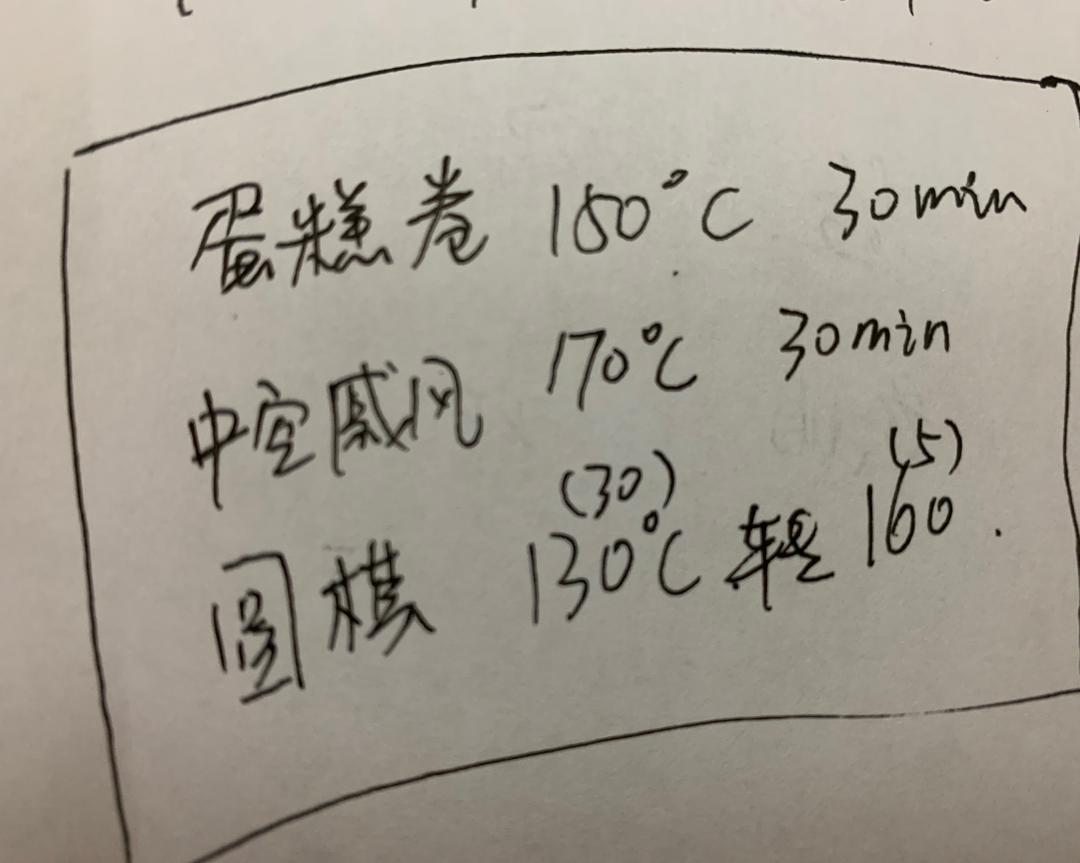 蛋糕卷 150°C 30min
中空戚风 170°C 30min
(30) (5)
圆模 130°C 轻 160.